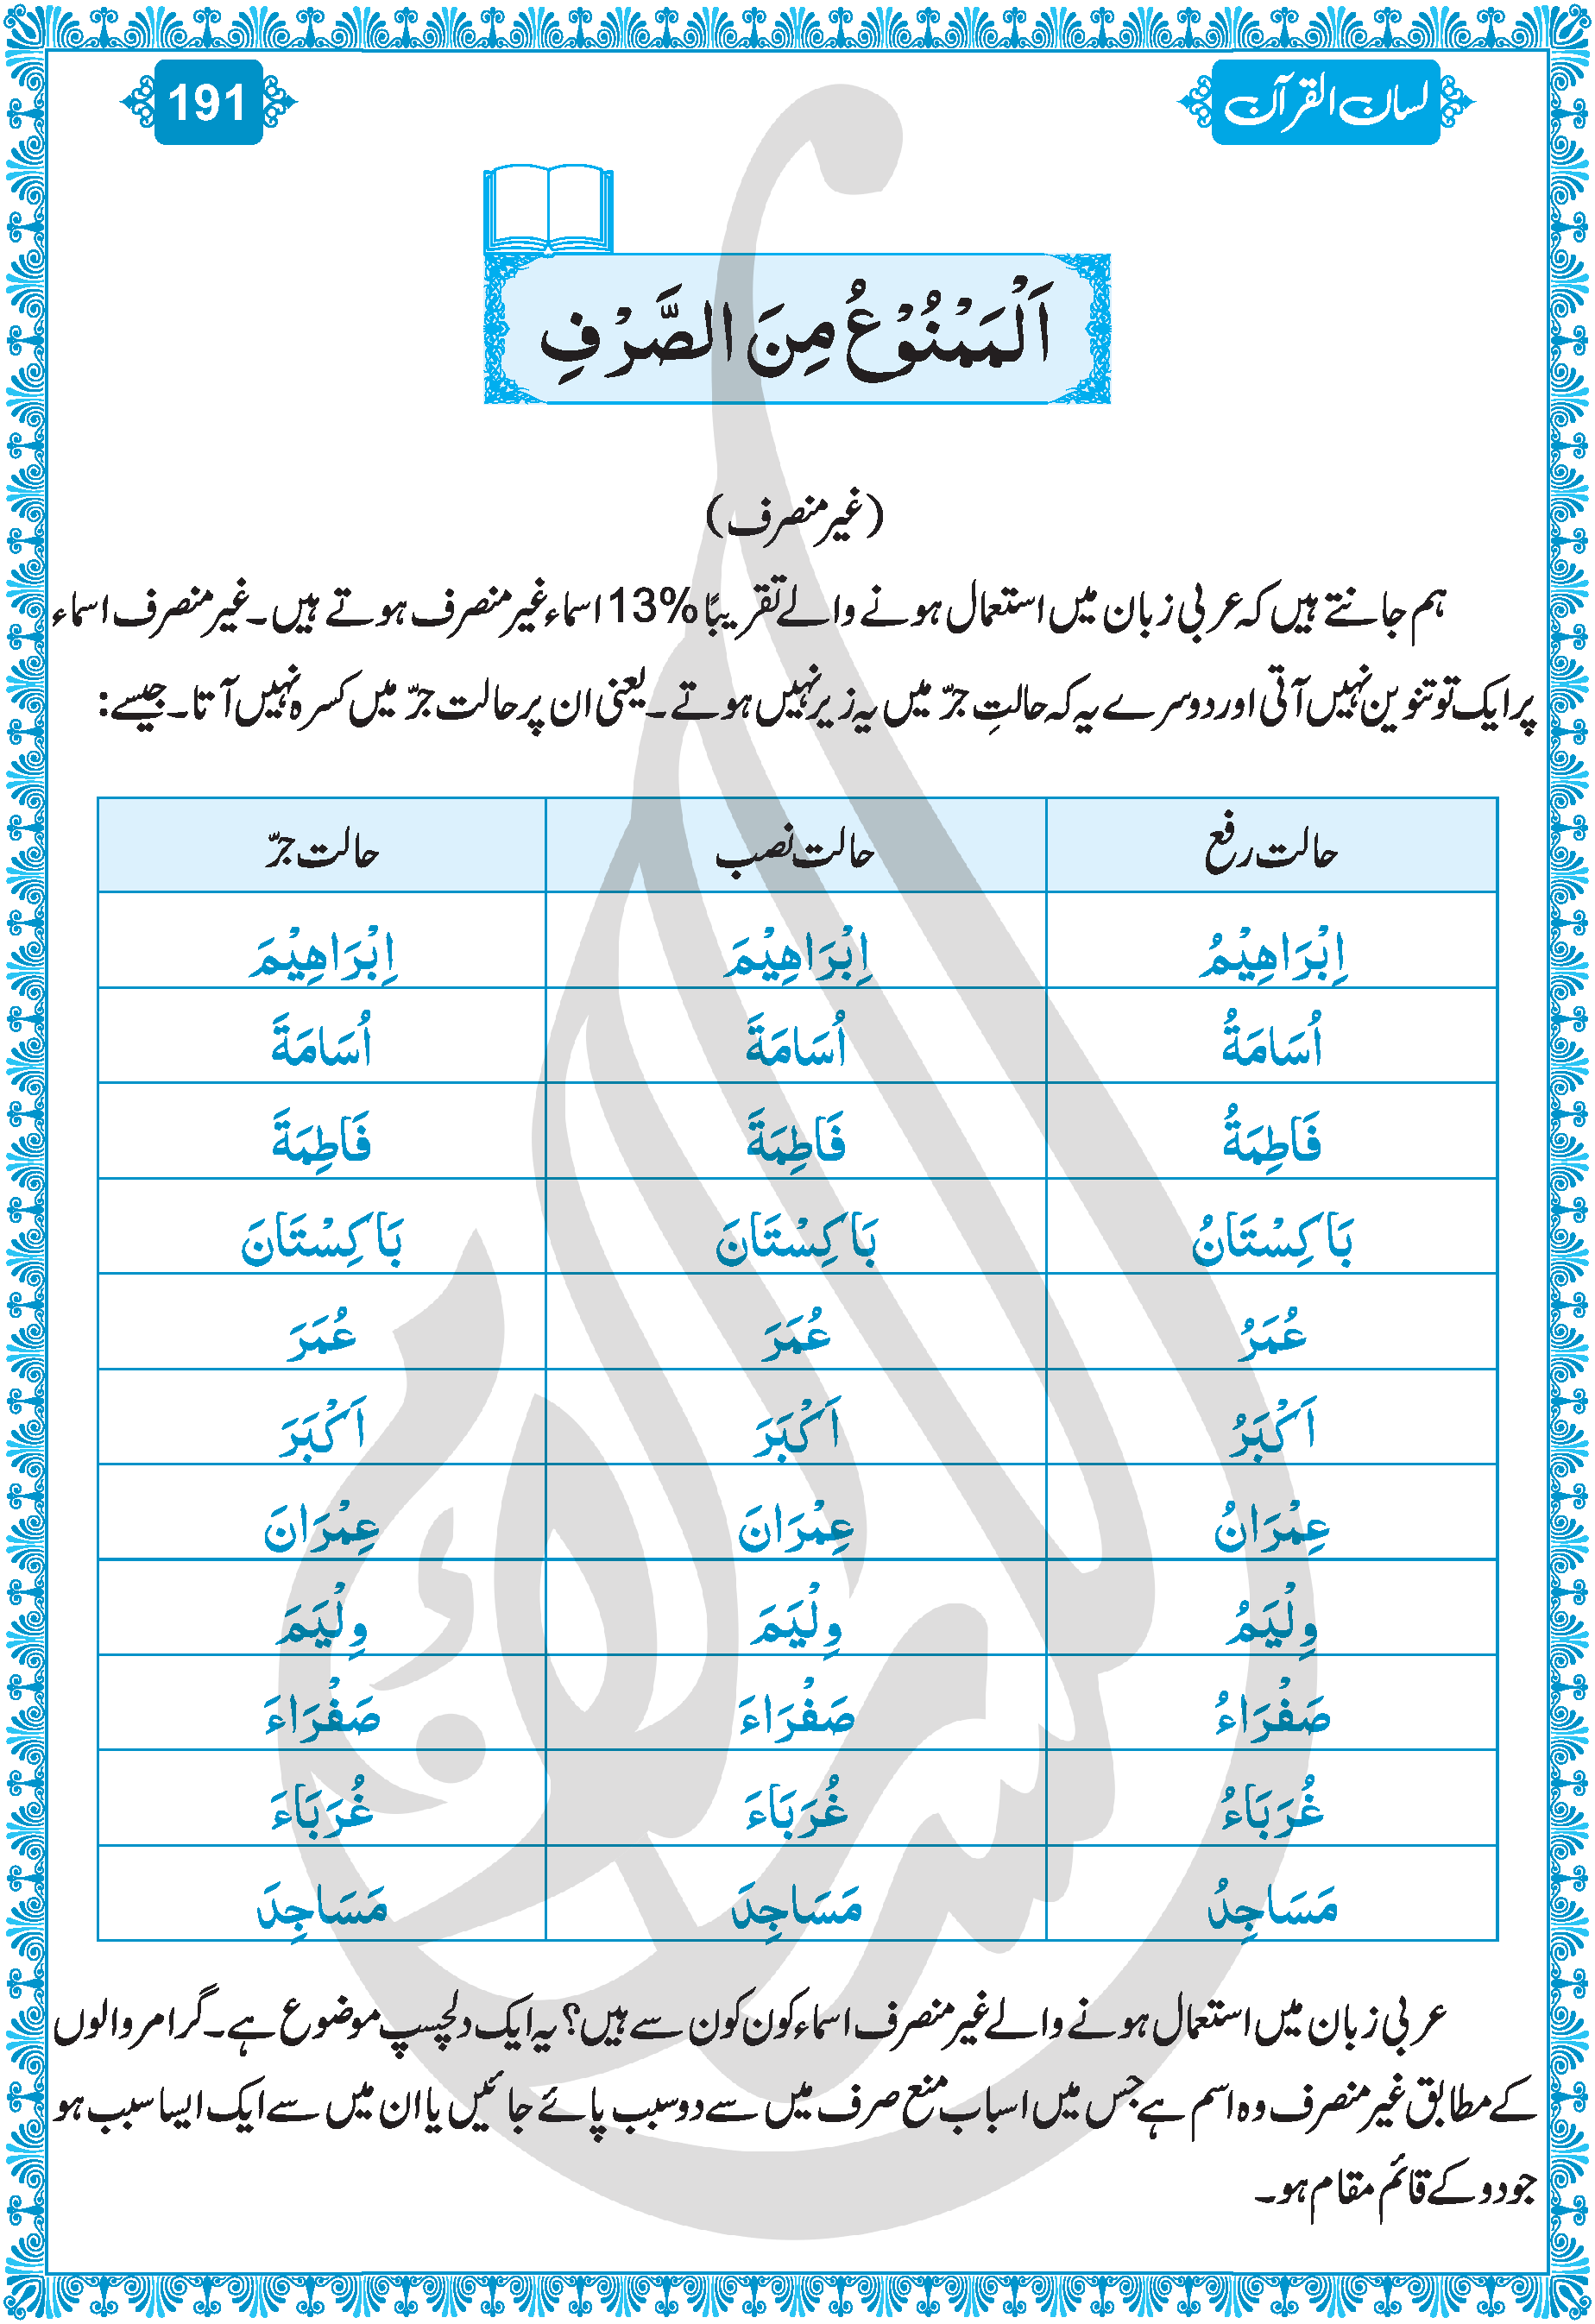 لسان القرآن
191
اَلْمَمْنُوْعُ مِنَ الصَّرْفِ
(غیر منصرف)
ہم جانتے ہیں کہ عربی زبان میں استعمال ہونے والے تقریبًا %13 اسماء غیر منصرف ہوتے ہیں۔ غیر منصرف اسماء
پر ایک تو تنوین نہیں آتی اور دوسرے یہ کہ حالتِ جرّ میں یہ زیر نہیں ہوتے۔ یعنی ان پر حالت جرّ میں کسرہ نہیں آتا۔ جیسے:
حالت رفع حالت نصب حالت جرّ
اِبْرَاهِيْمُ اِبْرَاهِيْمَ اِبْرَاهِيْمَ
اُسَامَةُ اُسَامَةَ اُسَامَةَ
فَاطِمَةُ فَاطِمَةَ فَاطِمَةَ
بَاكِسْتَانُ بَاكِسْتَانَ بَاكِسْتَانَ
عُمَرُ عُمَرَ عُمَرَ
اَكْبَرُ اَكْبَرَ اَكْبَرَ
عِمْرَانُ عِمْرَانَ عِمْرَانَ
وِلْيَمُ وِلْيَمَ وِلْيَمَ
صَفْرَاءُ صَفْرَاءَ صَفْرَاءَ
غُرَبَاءُ غُرَبَاءَ غُرَبَاءَ
مَسَاجِدُ مَسَاجِدَ مَسَاجِدَ
عربی زبان میں استعمال ہونے والے غیر منصرف اسماء کون کون سے ہیں؟ یہ ایک دلچسپ موضوع ہے۔ گرامر والوں
کے مطابق غیر منصرف وہ اسم ہے جس میں اسباب منع صرف میں سے دو سبب پائے جائیں یا ان میں سے ایک ایسا سبب ہو
جو دو کے قائم مقام ہو۔